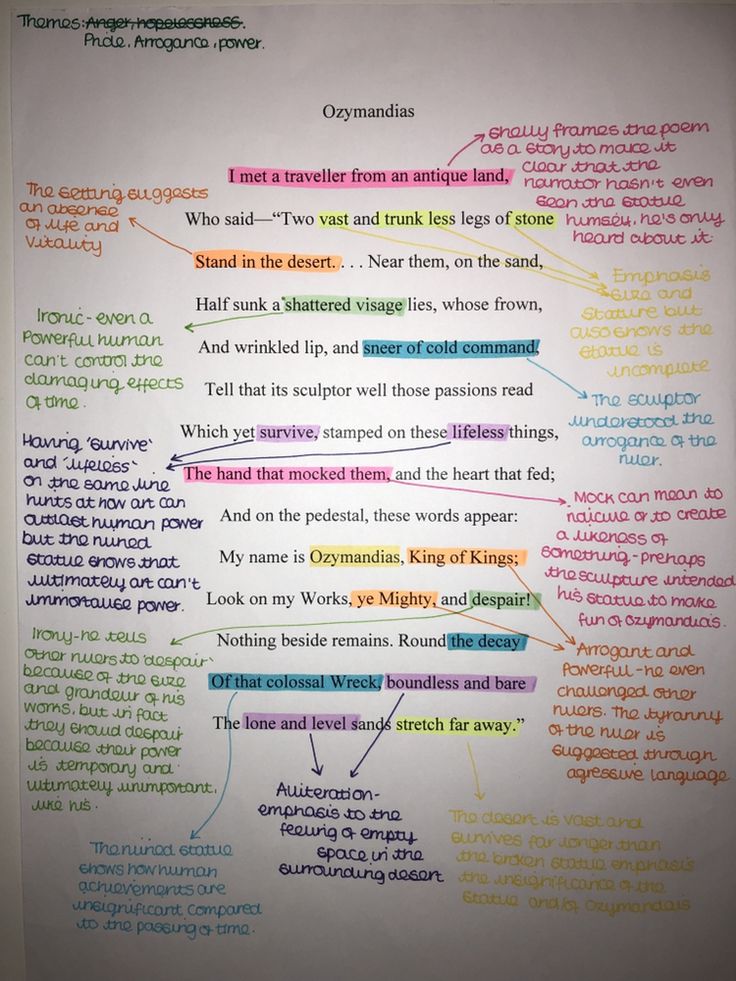 Themes: Anger, hopelessness.
Pride, Arrogance, power.
Ozymandias
I met a traveller from an antique land,
Who said—“Two vast and trunk less legs of stone
Stand in the desert. . . . Near them, on the sand,
Half sunk a shattered visage lies, whose frown,
And wrinkled lip, and sneer of cold command,
Tell that its sculptor well those passions read
Which yet survive, stamped on these lifeless things,
The hand that mocked them, and the heart that fed;
And on the pedestal, these words appear:
My name is Ozymandias, King of Kings;
Look on my Works, ye Mighty, and despair!
Nothing beside remains. Round the decay
Of that colossal Wreck, boundless and bare
The lone and level sands stretch far away.”
Shelly frames the poem
as a story to make it
clear that the
narrator hasn't even
seen the statue
himself, he's only
heard about it.
The setting suggests
an absence
of life and
vitality
Emphasis
size and
stature but
also shows the
statue is
incomplete
Ironic - even a
powerful human
can't control the
damaging effects
of time.
The sculptor
understood the
arrogance of the
ruler.
Having 'survive'
and 'lifeless'
on the same line
hints at how art can
outlast human power
but the ruined
statue shows that
ultimately art can't
immortalise power.
Mock can mean to
ridicule or to create
a likeness of
something - prehaps
the sculpture intended
his statue to make
fun of Ozymandias.
Irony - he tells
other rulers to 'despair'
because of the size
and grandeur of his
works, but in fact
they should despair
because their power
is temporary and
ultimately unimportant,
like his.
Arrogant and
Powerful - he even
challenged other
rulers. The tyranny
of the ruler is
suggested through
agressive language
Alliteration -
emphasis to the
feeling of empty
space in the
surrounding desert
The ruined statue
shows how human
achievements are
insignificant compared
to the passing of time.
The desert is vast and
survives far longer than
the broken statue emphasis
the insignificance of the
statue and/of Ozymandais